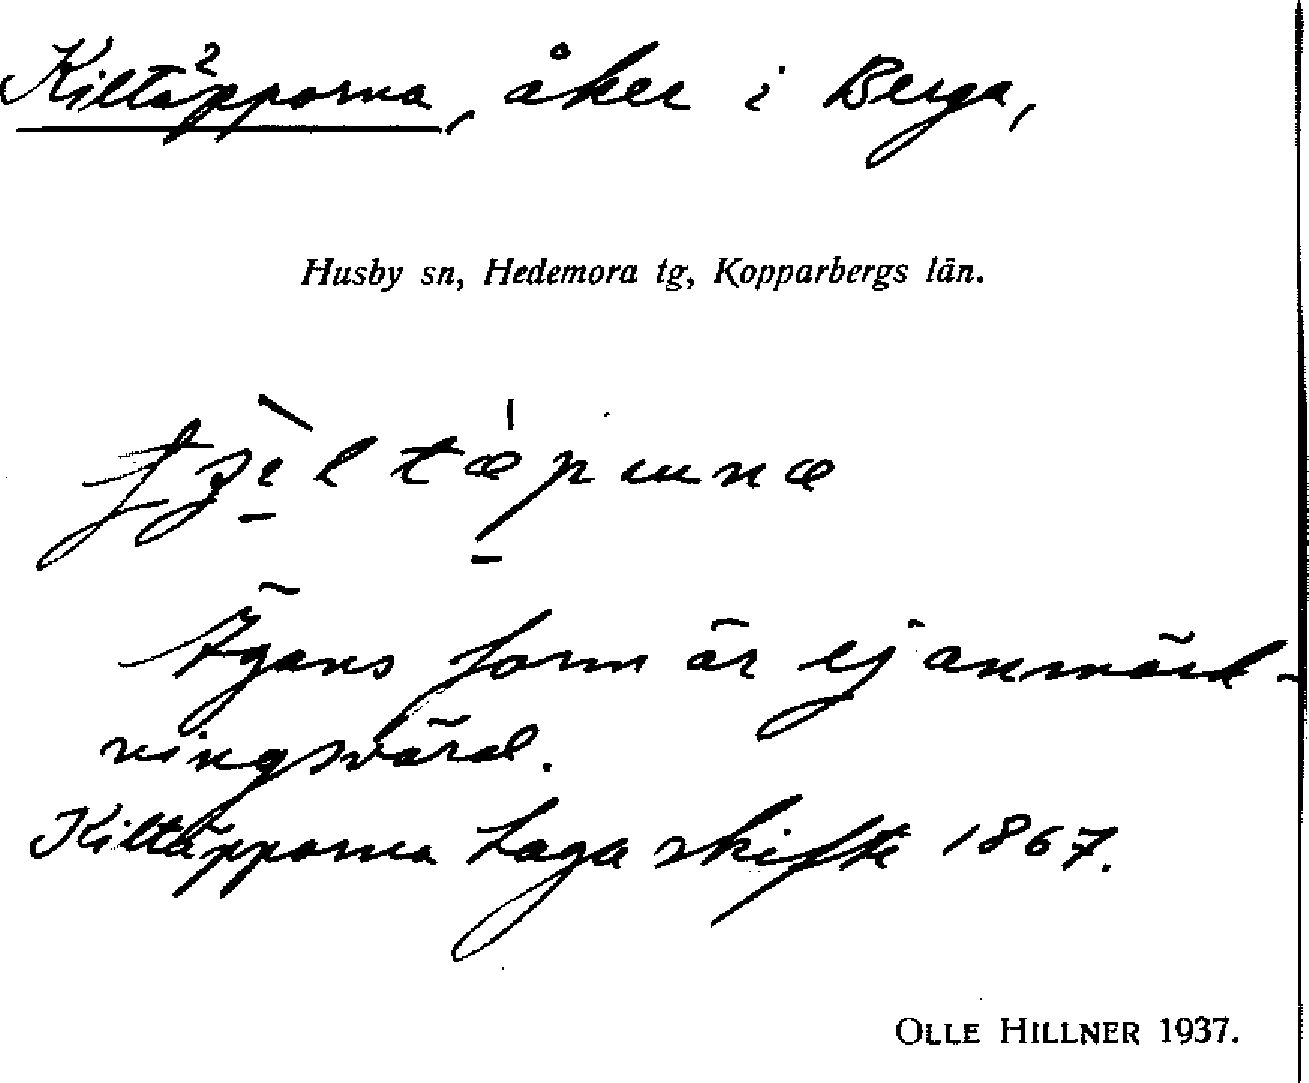 Kiltäpporna, åker i Berga,
Husby sn, Hedemora tg, Kopparbergs län.
Ägans form är ej anmärk-
ningsvärd.
Kiltäpporna Laga skifte 1867.
OLLE HILLNER 1937.